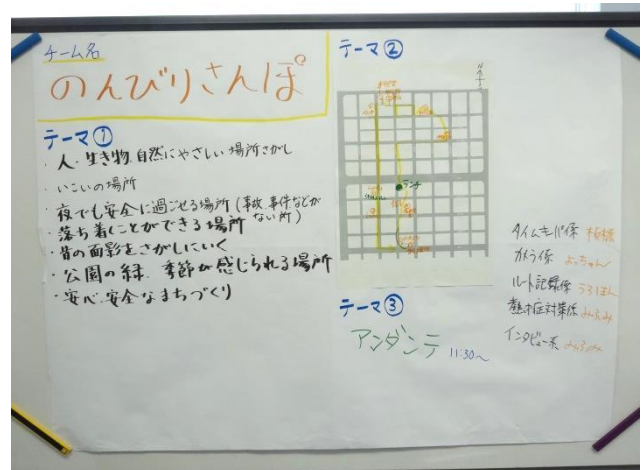 チーム名
のんびりさんぽ
テーマ①
・人・生き物.自然にやさしい場所さがし
・いこいの場所
・夜でも安全に過ごせる場所(事故.事件などがない所)
・落ち着くことができる場所
・昔の面影をさがしにいく
・公園の緑.季節が感じられる場所
・安心.安全なまちづくり
テーマ②
ランチ
テーマ③
アンダンテ 11:30〜
タイムキーパー係 板橋
カメラ係 よっちゃん
ルート記録係
熱中症対策係
インタビュー系